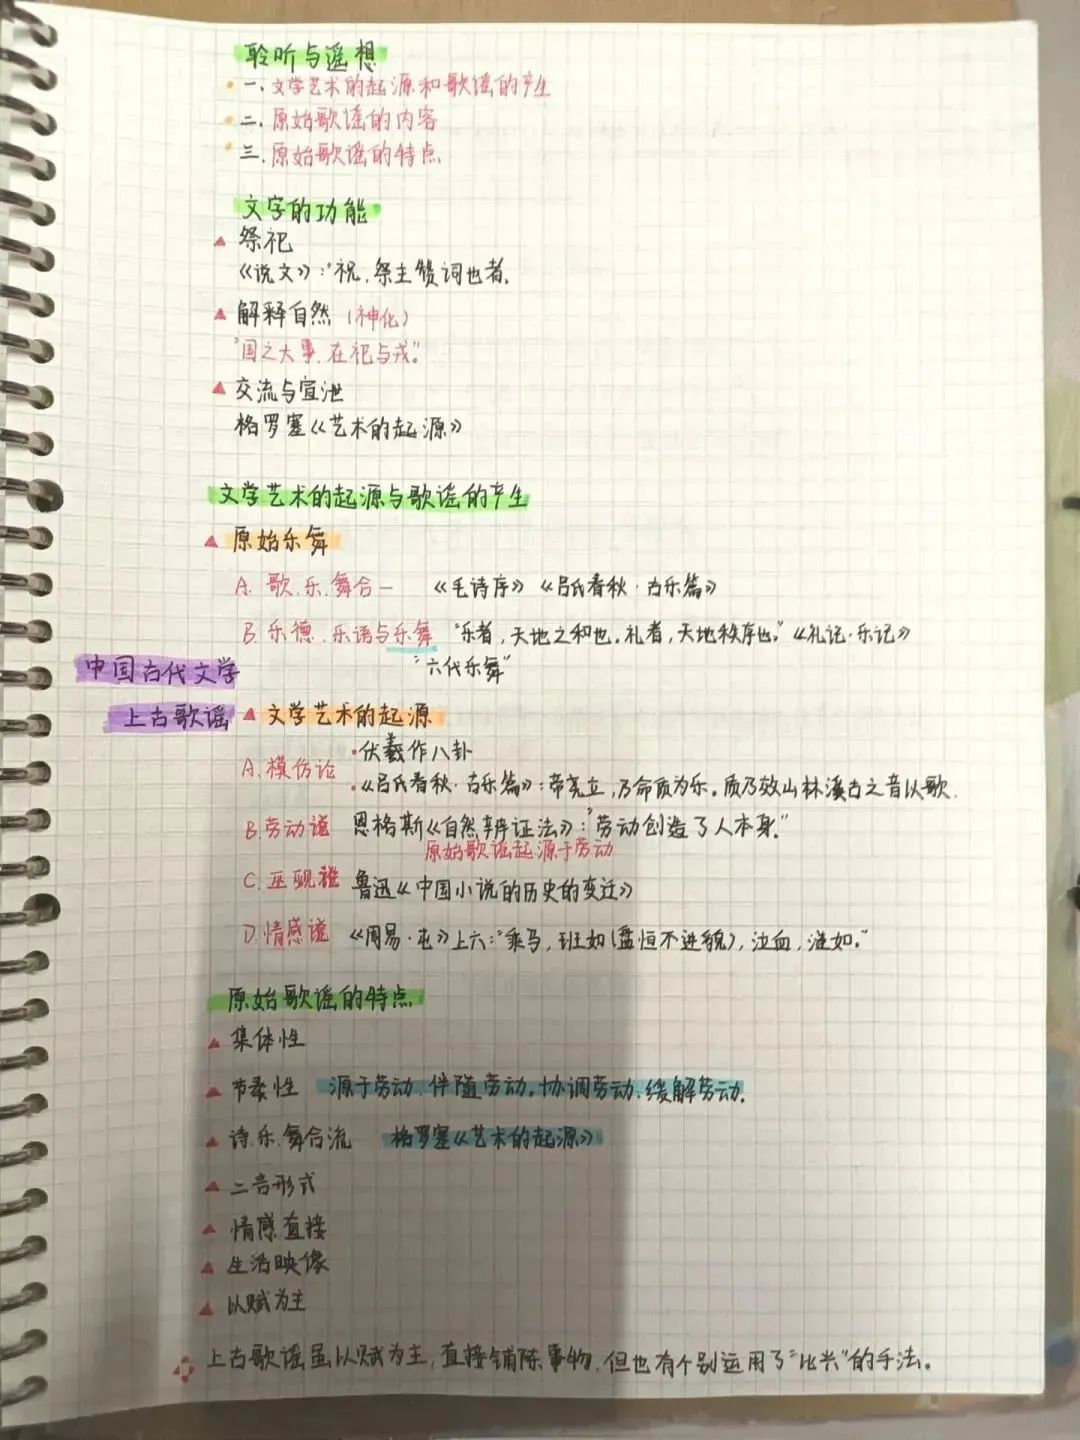 聆听与遥想
一.文学艺术的起源和歌谣的产生
二.原始歌谣的内容
三.原始歌谣的特点
文字的功能
祭祀
《说文》:“祝,祭主赞词也者.
解释自然(神化)
“国之大事,在祀与戎。”
交流与宣泄
格罗塞《艺术的起源》
文学艺术的起源与歌谣的产生
原始乐舞
A.歌.乐.舞合一 《毛诗序》《吕氏春秋·古乐篇》
B.乐德.乐语与乐舞 “乐者,天地之和也.礼者,天地秩序也.”《礼记·乐记》
“六代乐舞”
中国古代文学
上古歌谣
文学艺术的起源
A.模仿论 ·伏羲作八卦
·《吕氏春秋·古乐篇》:帝尧立,乃命质为乐。质乃效山林溪古之音以歌.
B.劳动说 恩格斯《自然辨证法》:“劳动创造了人本身.”
原始歌谣起源于劳动
C.巫觋说 鲁迅《中国小说的历史的变迁》
D.情感说 《周易·屯》上六:“乘马,班如(盘恒不进貌),泣血,涟如。”
原始歌谣的特点
集体性
节奏性 源于劳动.伴随劳动。协调劳动.缓解劳动.
诗.乐.舞合流 格罗塞《艺术的起源》
二言形式
情感直接
生活映像
以赋为主
上古歌谣虽以赋为主,直接铺陈事物,但也有个别运用了“比兴”的手法。